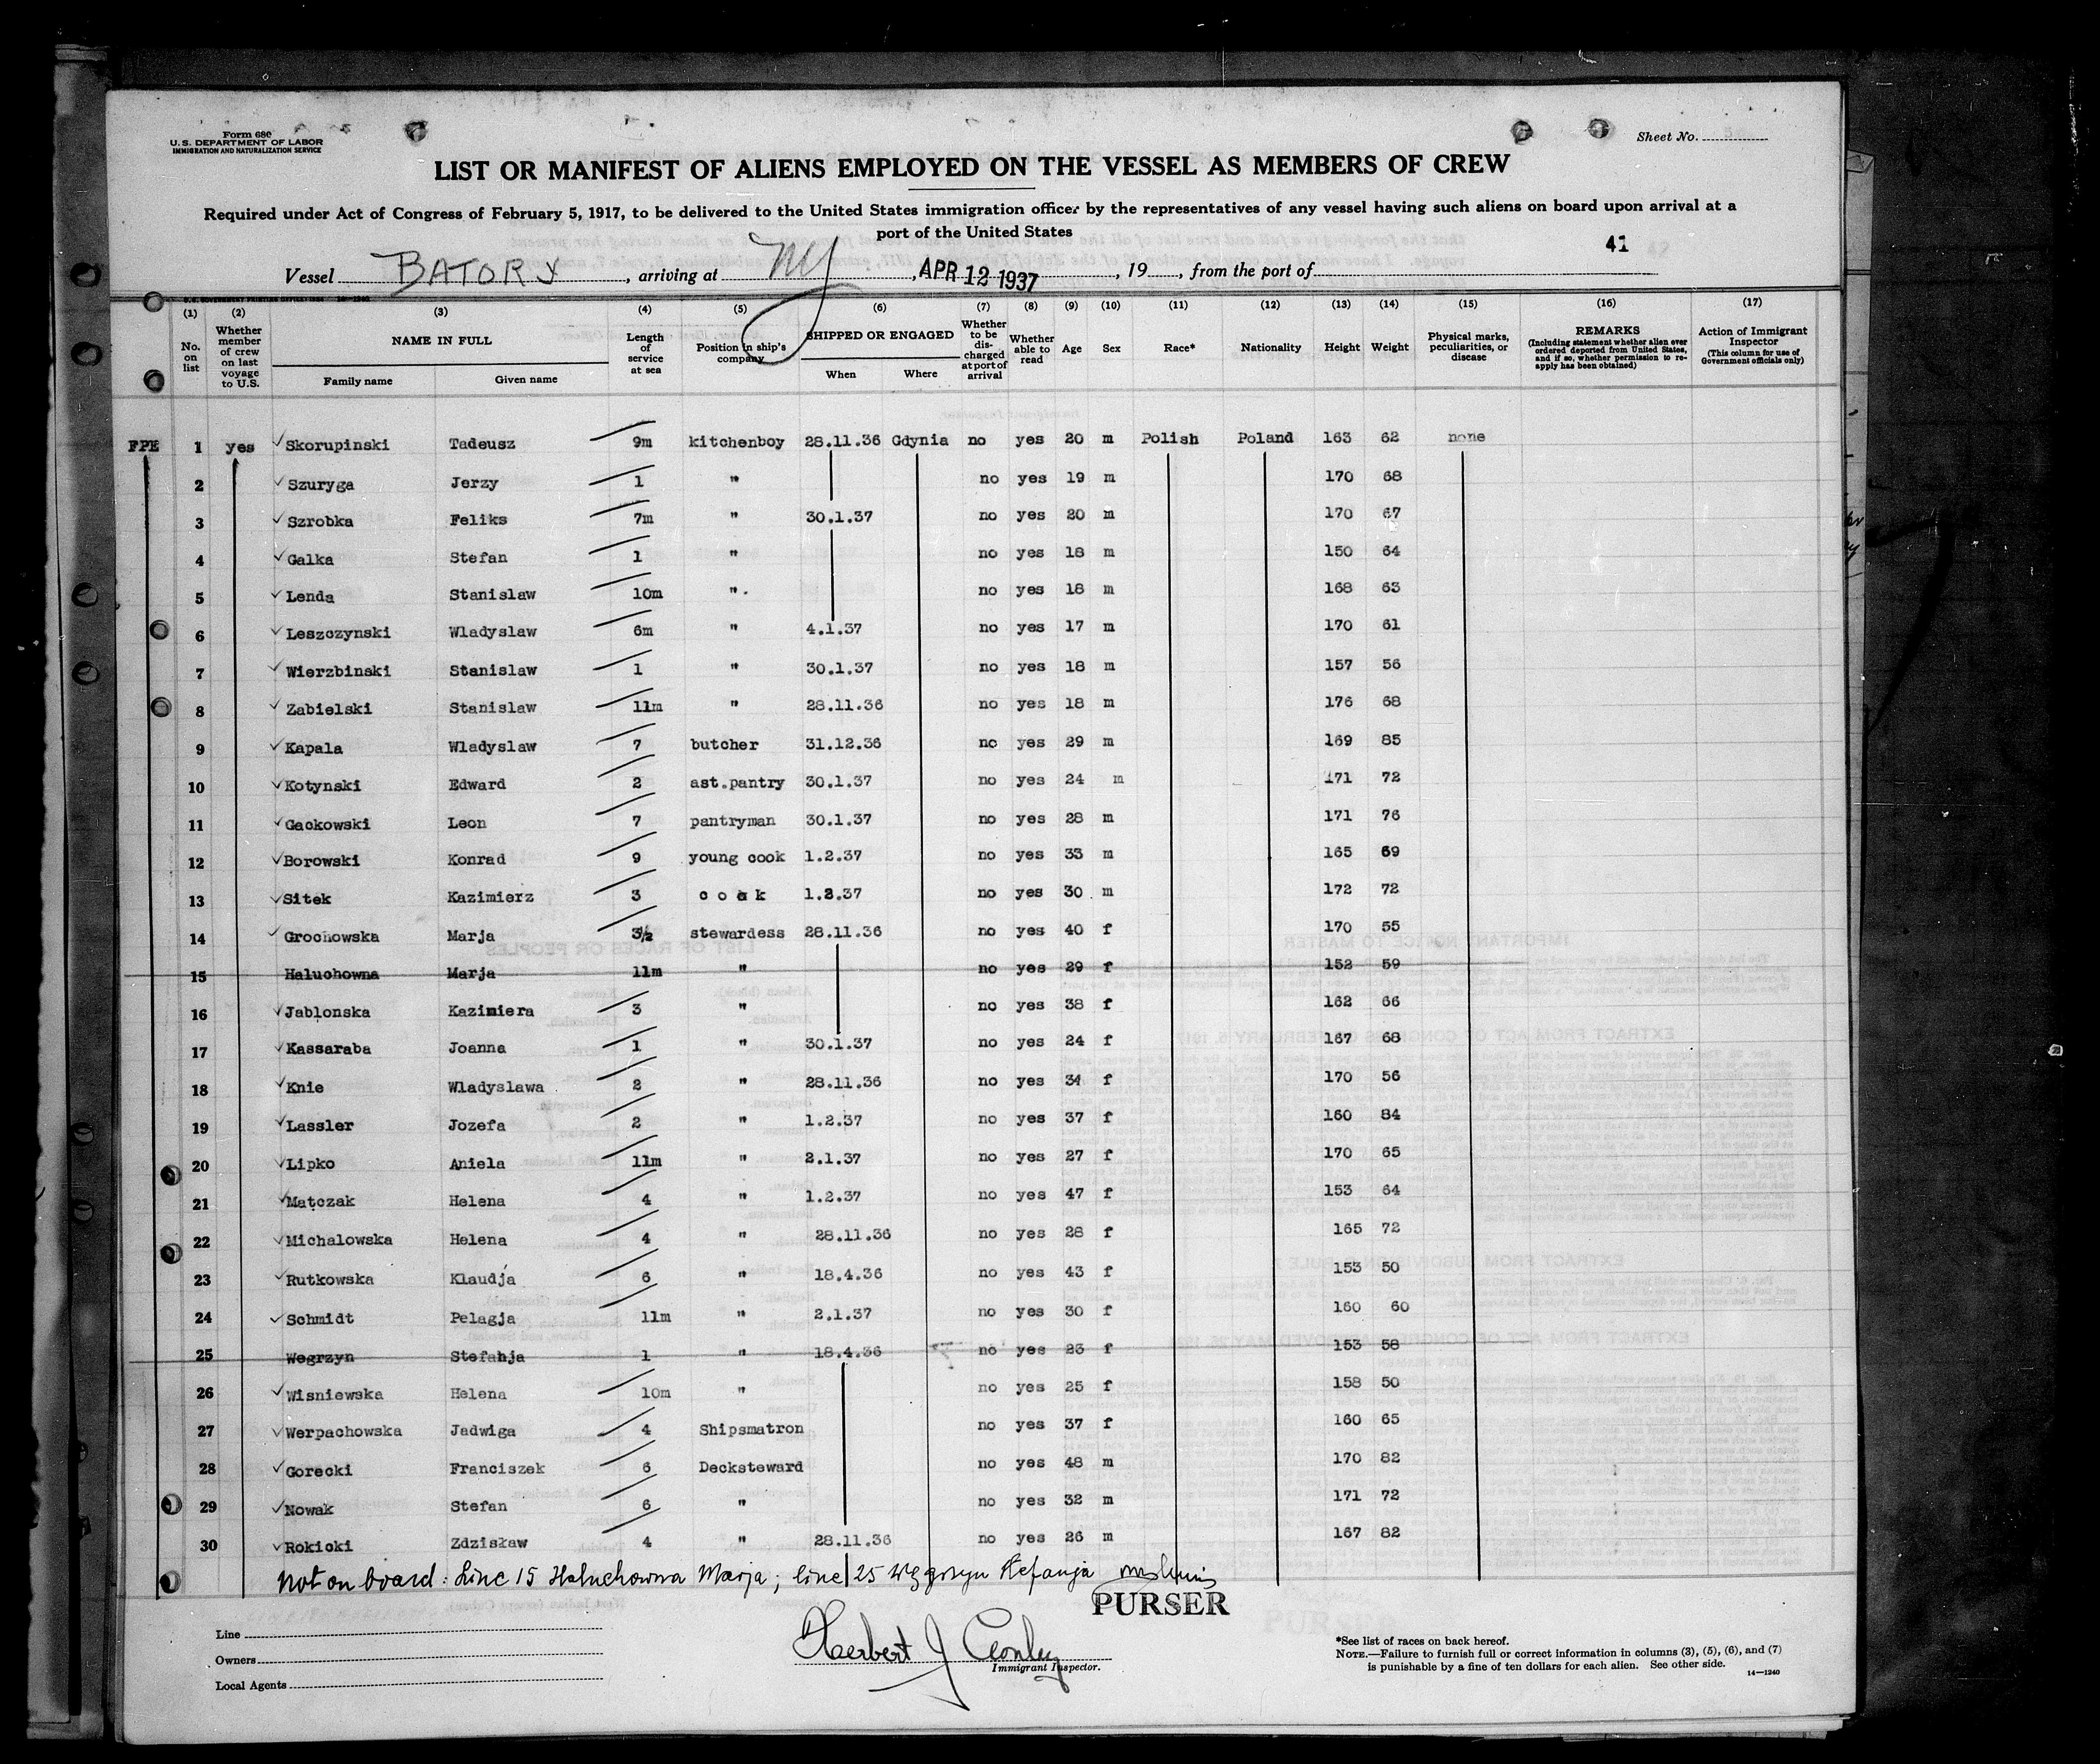 Form 680
U.S. DEPARTMENT OF LABOR
IMMIGRATION AND NATURALIZATION SERVICE
Sheet No.
LIST OR MANIFEST OF ALIENS EMPLOYED ON THE VESSEL AS MEMBERS OF CREW
Required under Act of Congress of February 5, 1917, to be delivered to the United States immigration officer by the representatives of any vessel having such aliens on board upon arrival at a
port of the United States
41
Vessel BATORY, arriving at NY, APR 12 1937, 19, from the port of
(1) (2) (3) (4) (5) (6) (7) (8) (9) (10) (11) (12) (13) (14) (15) (16) (17)
No. on list Whether member of crew on last voyage to U.S. NAME IN FULL Family name Given name Length of service at sea Position in ship's company SHIPPED OR ENGAGED When Where Whether to be discharged at port of arrival Whether able to read Age Sex Race* Nationality Height Weight Physical marks, peculiarities, or disease REMARKS (Including statement whether alien ever ordered deported from United States, and if so, whether permission to reapply has been obtained) Action of Immigrant Inspector (This column for use of Government officials only)
FPE 1 yes Skorupinski Tadeusz 9m kitchenboy 28.11.36 Gdynia no yes 20 m Polish Poland 163 62 none
2 Szuryga Jerzy 1 " no yes 19 m 170 68
3 Szrobka Feliks 7m " 30.1.37 no yes 20 m 170 67
4 Galka Stefan 1 " no yes 18 m 150 64
5 Lenda Stanislaw 10m ". no yes 18 m 168 63
6 Leszczynski Wladyslaw 6m " 4.1.37 no yes 17 m 170 61
7 Wierzbinski Stanislaw 1 " 30.1.37 no yes 18 m 157 56
8 Zabielski Stanislaw 11m " 28.11.36 no yes 18 m 176 68
9 Kapala Wladyslaw 7 butcher 31.12.36 no yes 29 m 169 85
10 Kotynski Edward 2 ast.pantry 30.1.37 no yes 24 m 171 72
11 Gackowski Leon 7 pantryman 30.1.37 no yes 28 m 171 76
12 Borowski Konrad 9 young cook 1.2.37 no yes 33 m 165 69
13 Sitek Kazimierz 3 cook 1.2.37 no yes 30 m 172 72
14 Grochowska Marja 3½ stewardess 28.11.36 no yes 40 f 170 55
15 Haluchowna Marja 11m " no yes 29 f 152 59
16 Jablonska Kazimiera 3 " no yes 38 f 162 66
17 Kassaraba Joanna 1 " 30.1.37 no yes 24 f 167 68
18 Knie Wladyslawa 2 " 28.11.36 no yes 34 f 170 56
19 Lassler Jozefa 2 " 1.2.37 no yes 37 f 160 84
20 Lipko Aniela 11m " 2.1.37 no yes 27 f 170 65
21 Matczak Helena 4 " 1.2.37 no yes 47 f 153 64
22 Michalowska Helena 4 " 28.11.36 no yes 28 f 165 72
23 Rutkowska Klaudja 6 " 18.4.36 no yes 43 f 153 50
24 Schmidt Pelagja 11m " 2.1.37 no yes 30 f 160 60
25 Wegrzyn Stefanja 1 " 18.4.36 no yes 23 f 153 58
26 Wisniewska Helena 10m " no yes 25 f 158 50
27 Werpachowska Jadwiga 4 Shipsmatron no yes 37 f 160 65
28 Gorecki Franciszek 6 Decksteward no yes 48 m 170 82
29 Nowak Stefan 6 " no yes 32 m 171 72
30 Rokicki Zdzisław 4 " 28.11.36 no yes 26 m 167 82
Not on board: Line 15 Haluchowna Marja; line 25 Węgrzyn Stefanja
PURSER
Line
Owners
Local Agents
Herbert J Conley
Immigrant Inspector.
*See list of races on back hereof.
NOTE.—Failure to furnish full or correct information in columns (3), (5), (6), and (7)
is punishable by a fine of ten dollars for each alien. See other side.
14—1240